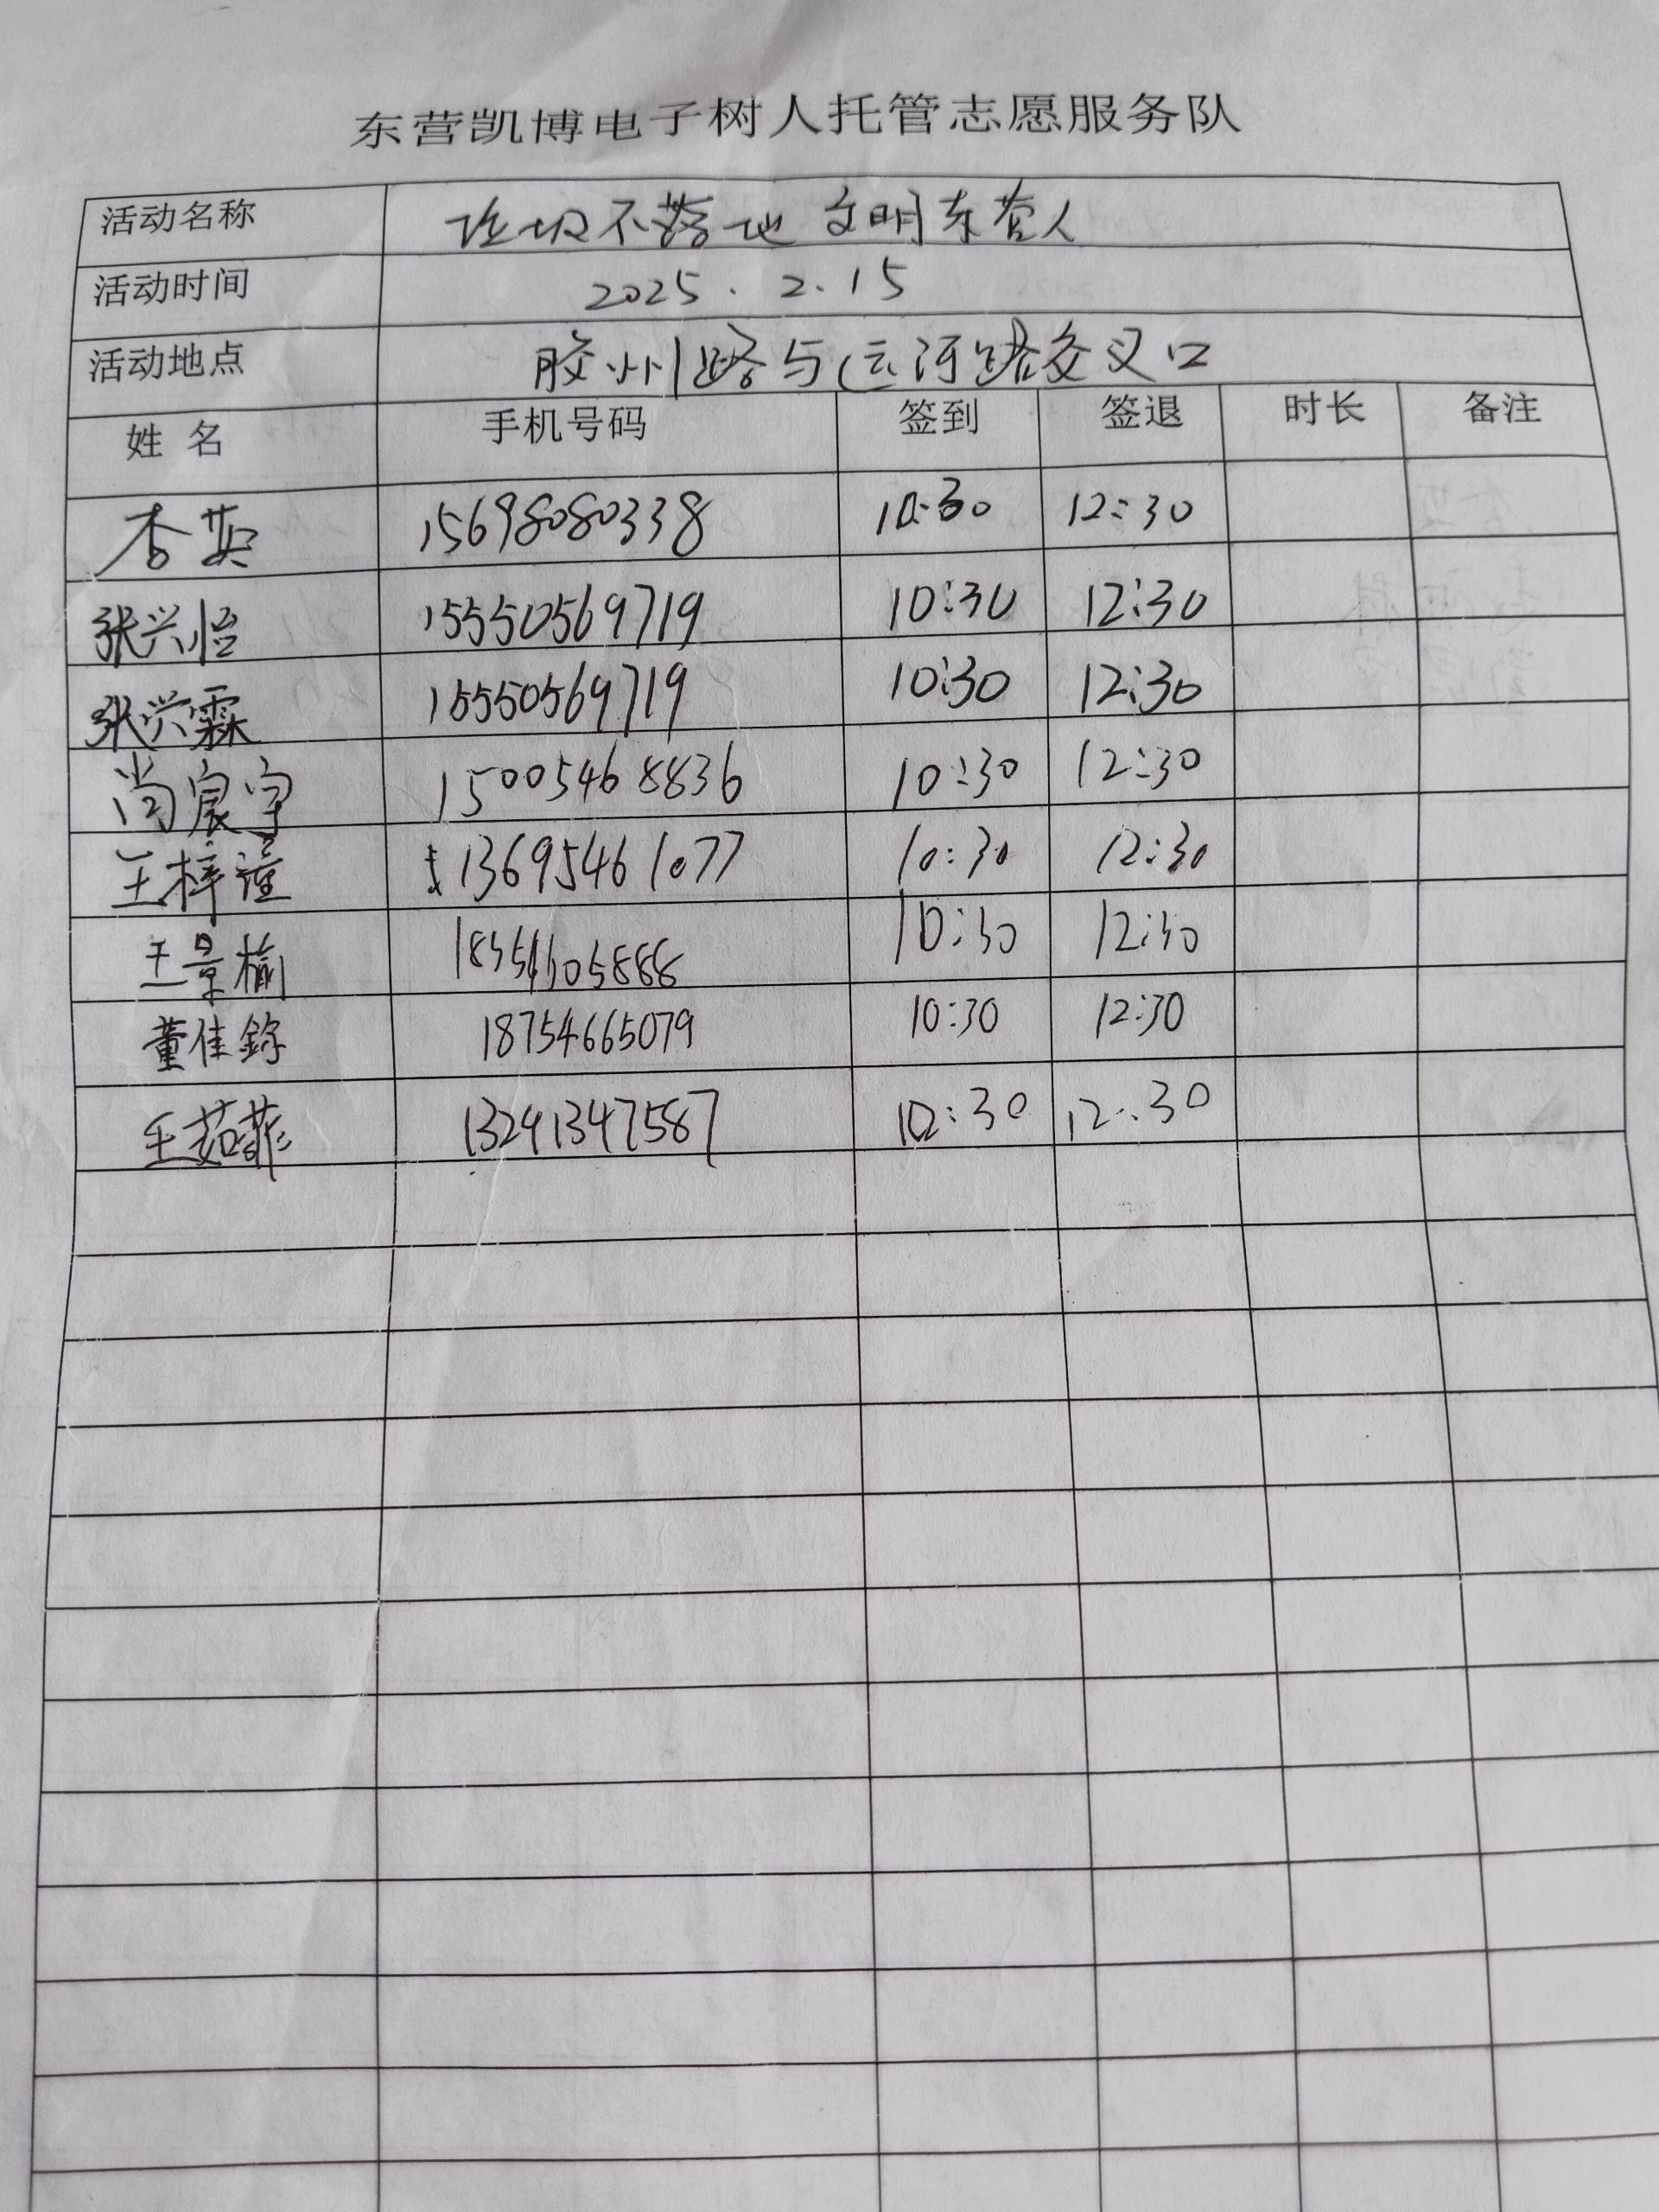 东营凯博电子树人托管志愿服务队
活动名称 垃圾不落地 文明东营人
活动时间 2025.2.15
活动地点 胶州路与运河路交叉口
姓 名 手机号码 签到 签退 时长 备注
李英 15698080338 10:30 12:30
张兴怡 15550569719 10:30 12:30
张兴霖 15550569719 10:30 12:30
尚宸宇 15005468836 10:30 12:30
王梓潼 13695461077 10:30 12:30
王景榆 10:30 12:30
董佳 18754665079 10:30 12:30
王茹菲 13291347587 10:30 12:30